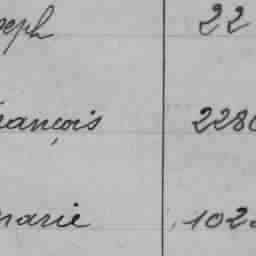 seph 22
rançois 228
marie 102